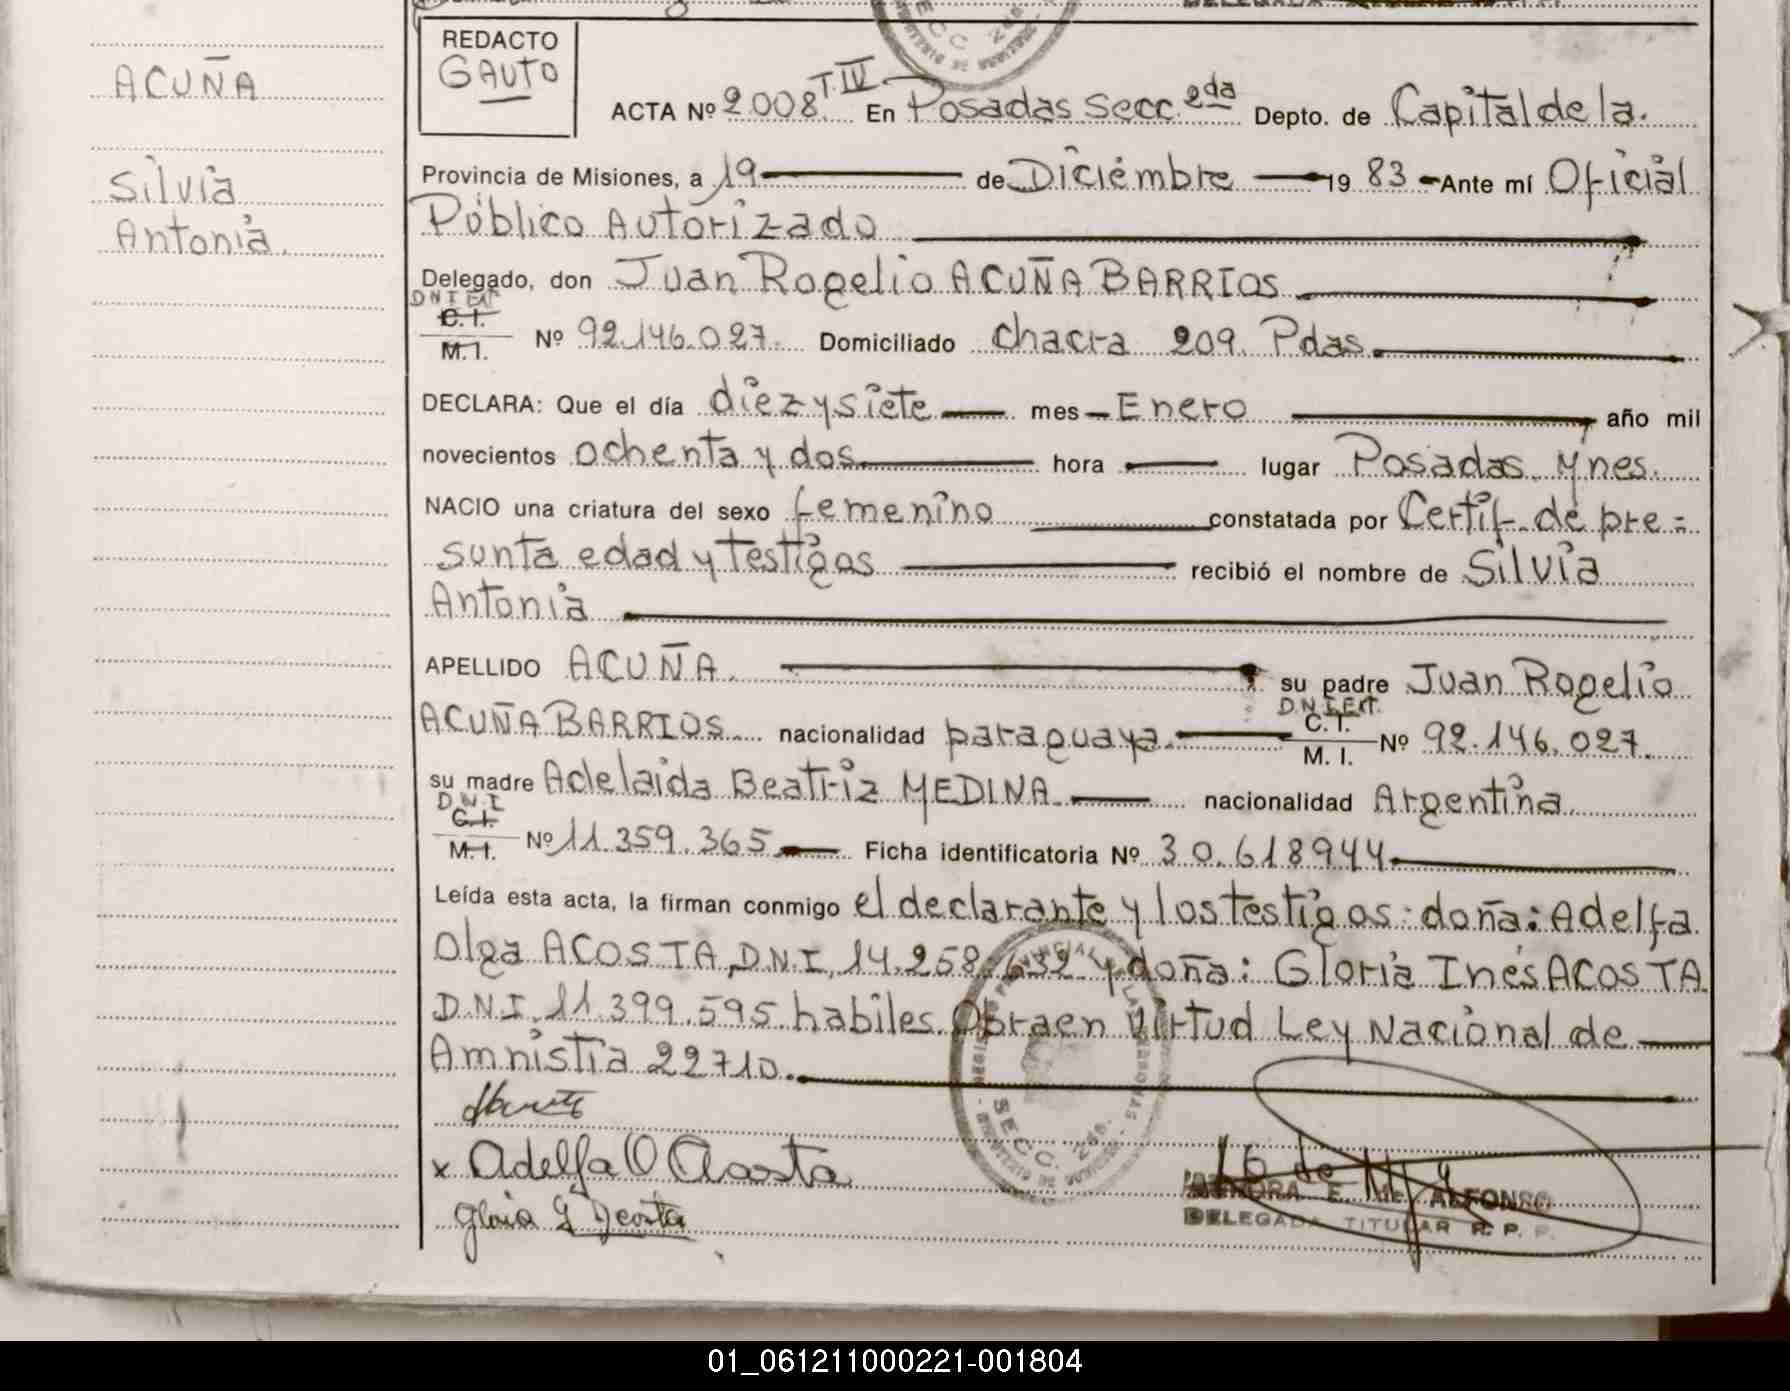 ACUÑA
Silvia
Antonia.
REDACTO
GAUTO
ACTA Nº 2008 T.IV En Posadas Secc. 2da Depto. de Capital de la
Provincia de Misiones, a 19 de Diciembre 19 83 Ante mí Oficial
Público Autorizado
Delegado, don Juan Rogelio ACUÑA BARRIOS
DNI Ext
C.I.
M.I. Nº 92.146.027. Domiciliado chacra 209. Pdas.
DECLARA: Que el día diez y siete mes Enero año mil
novecientos ochenta y dos hora lugar Posadas. Mnes.
NACIO una criatura del sexo femenino constatada por Certif. de pre=
sunta edad y testigos recibió el nombre de Silvia
Antonia
APELLIDO ACUÑA. su padre Juan Rogelio
D.N.I.Ext.
ACUÑA BARRIOS nacionalidad paraguaya. C.I. M. I. Nº 92.146.027.
su madre Adelaida Beatriz MEDINA nacionalidad Argentina
D.N.I
C.I.
M.I. Nº 11.359.365 Ficha identificatoria Nº 30.618944
Leída esta acta, la firman conmigo el declarante y los testigos: doña: Adelfa
Olga ACOSTA, D.N.I. 14.258.632 y doña: Gloria Inés ACOSTA
D.N.I. 11.399.595 habiles. Obra en Virtud Ley Nacional de
Amnistia 22710.
x Adelfa O Acosta
Gloria I Acosta
SECC. 2da.
E. de ALFONSO
DELEGADA TITULAR R. P. P.
01_061211000221-001804